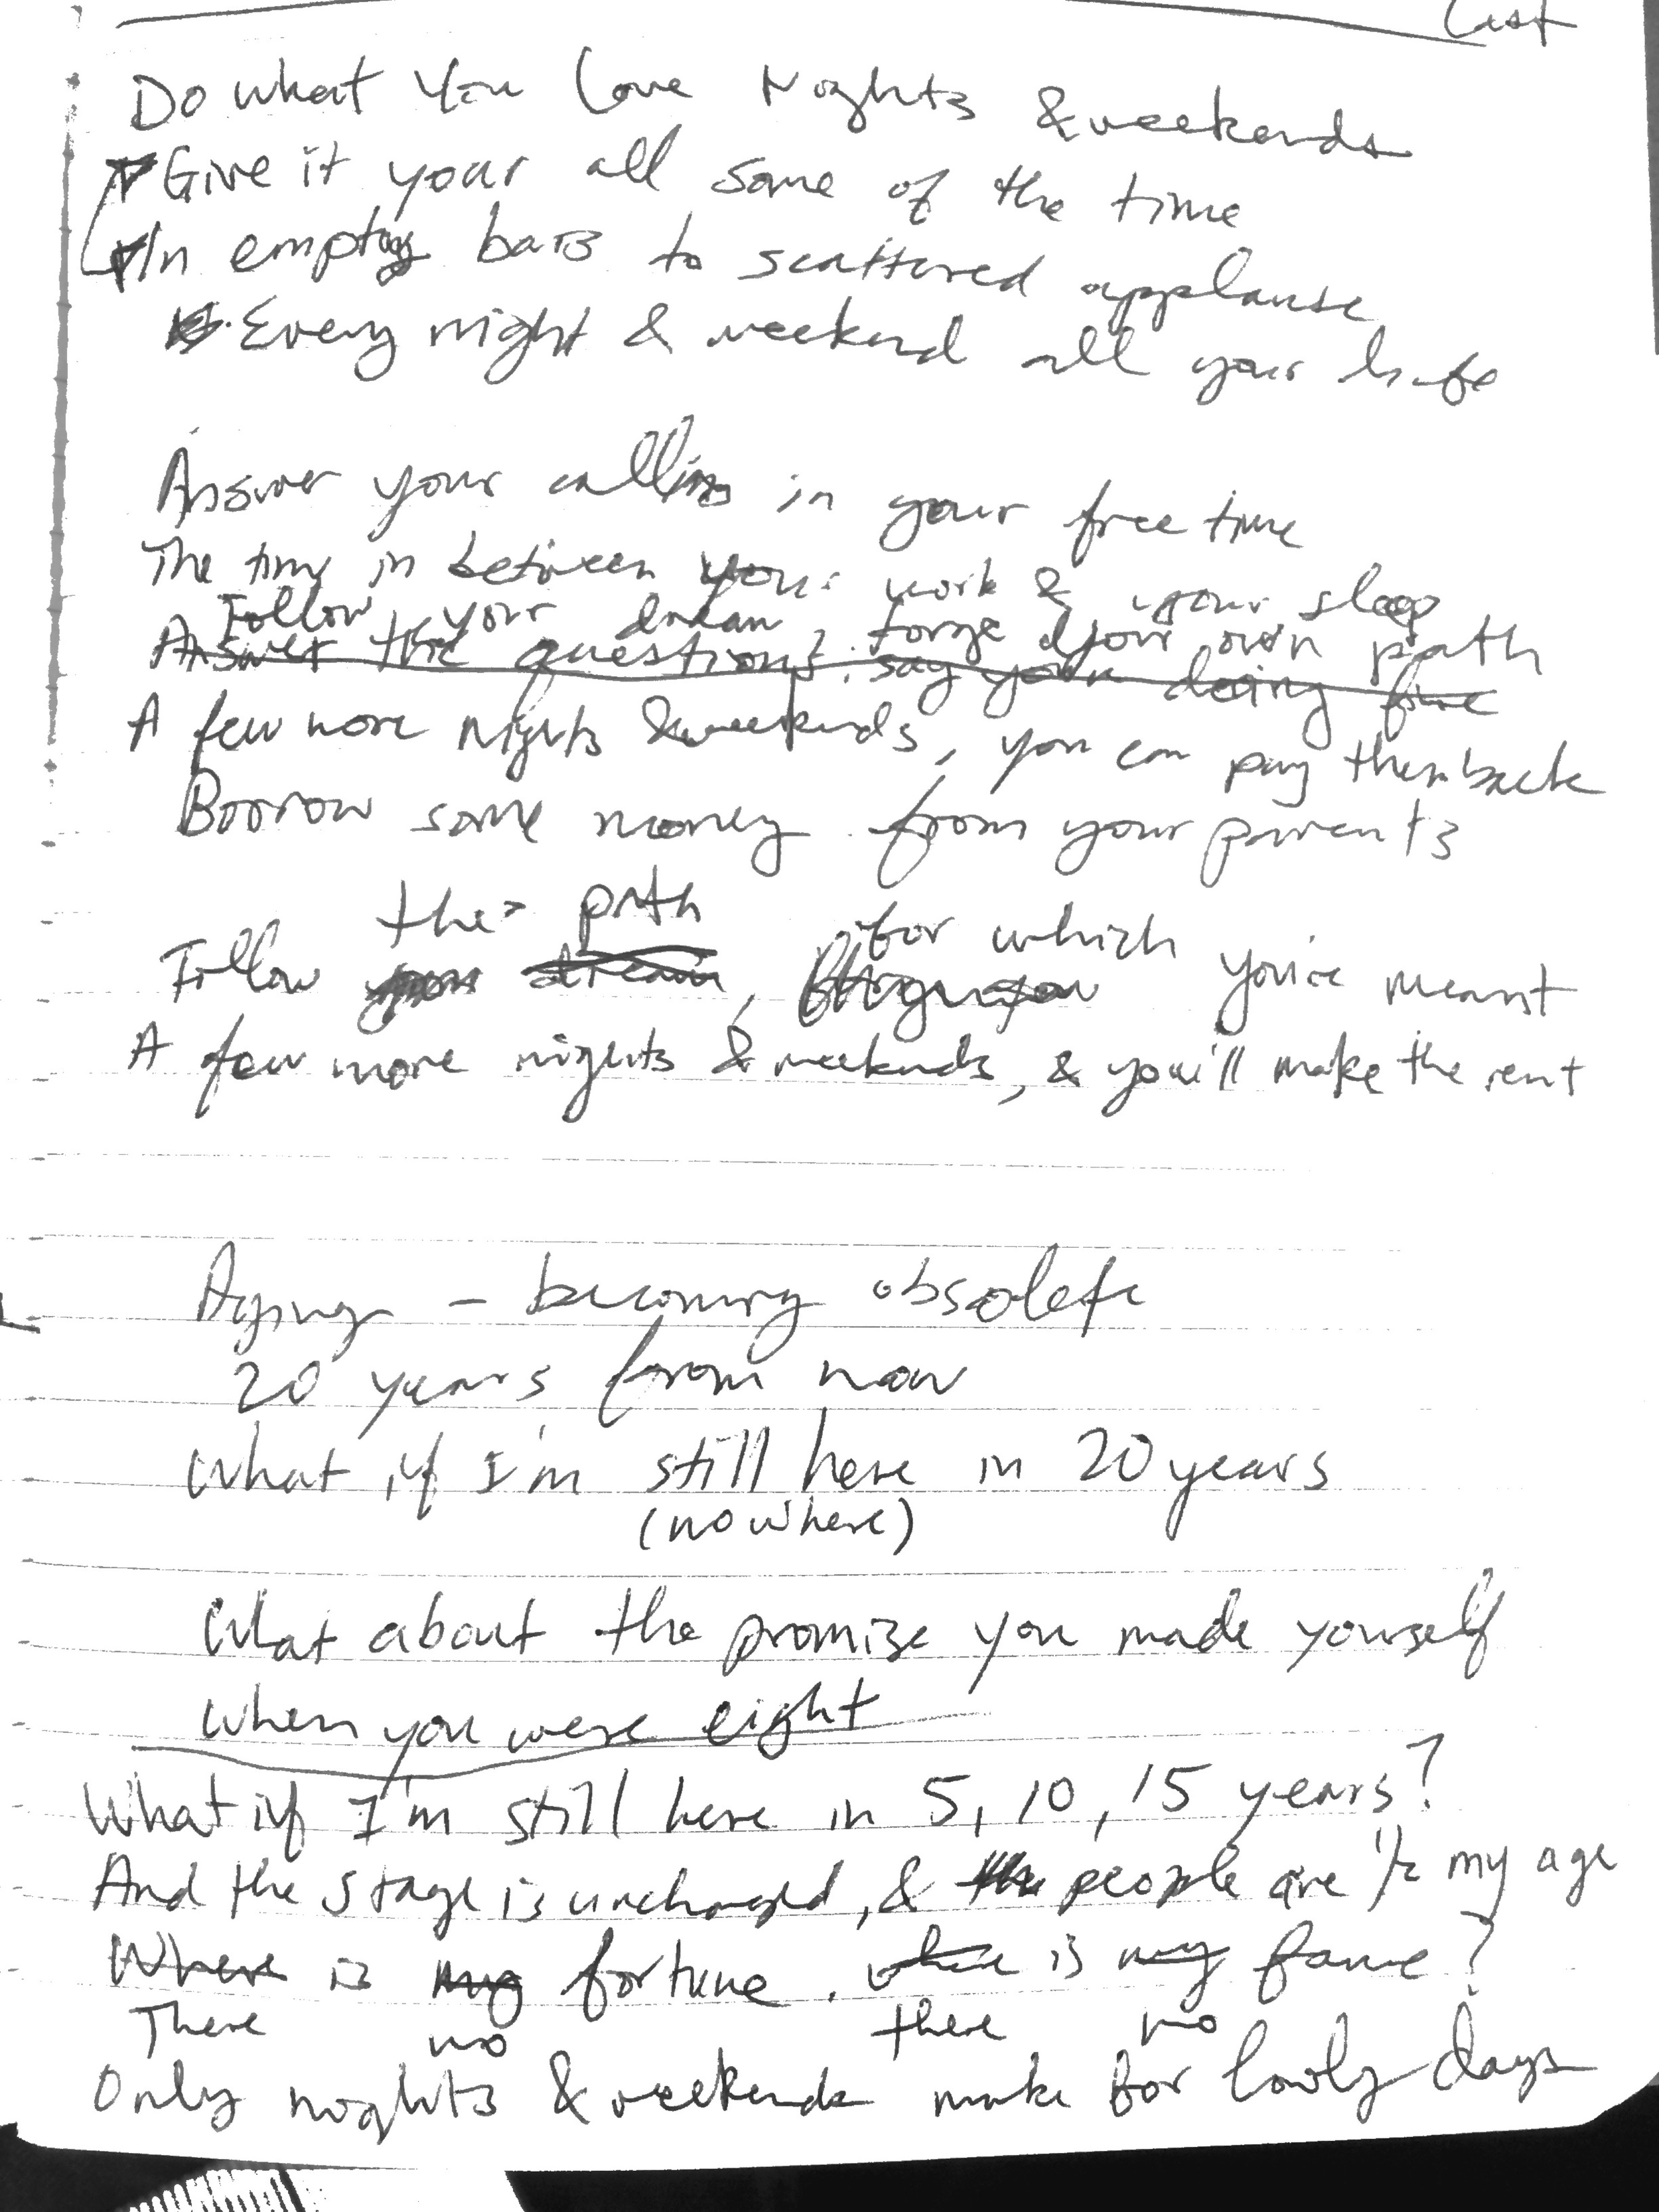 Last
Do what you love Nights & weekends
Give it your all some of the time
In empty bars to scattered applause
Every night & weekend all your life
Answer your calling in your free time
The time in between your work & your sleep
Follow your dream, forge your own path
Answer the questions, say your doing fine
A few more nights & weekends, you can pay them back
Borrow some money from your parents
the path for which
Follow your dream, you're meant
A few more nights & weekends, & you'll make the rent
Aging - becoming obsolete
20 years from now
What if I'm still here in 20 years
(nowhere)
What about the promise you made yourself
when you were eight
What if I'm still here in 5, 10, 15 years?
And the stage is unchanged, & the people are 1/2 my age
Where is my fortune. where is my fame?
There no there no
Only nights & weekends make for lowly days